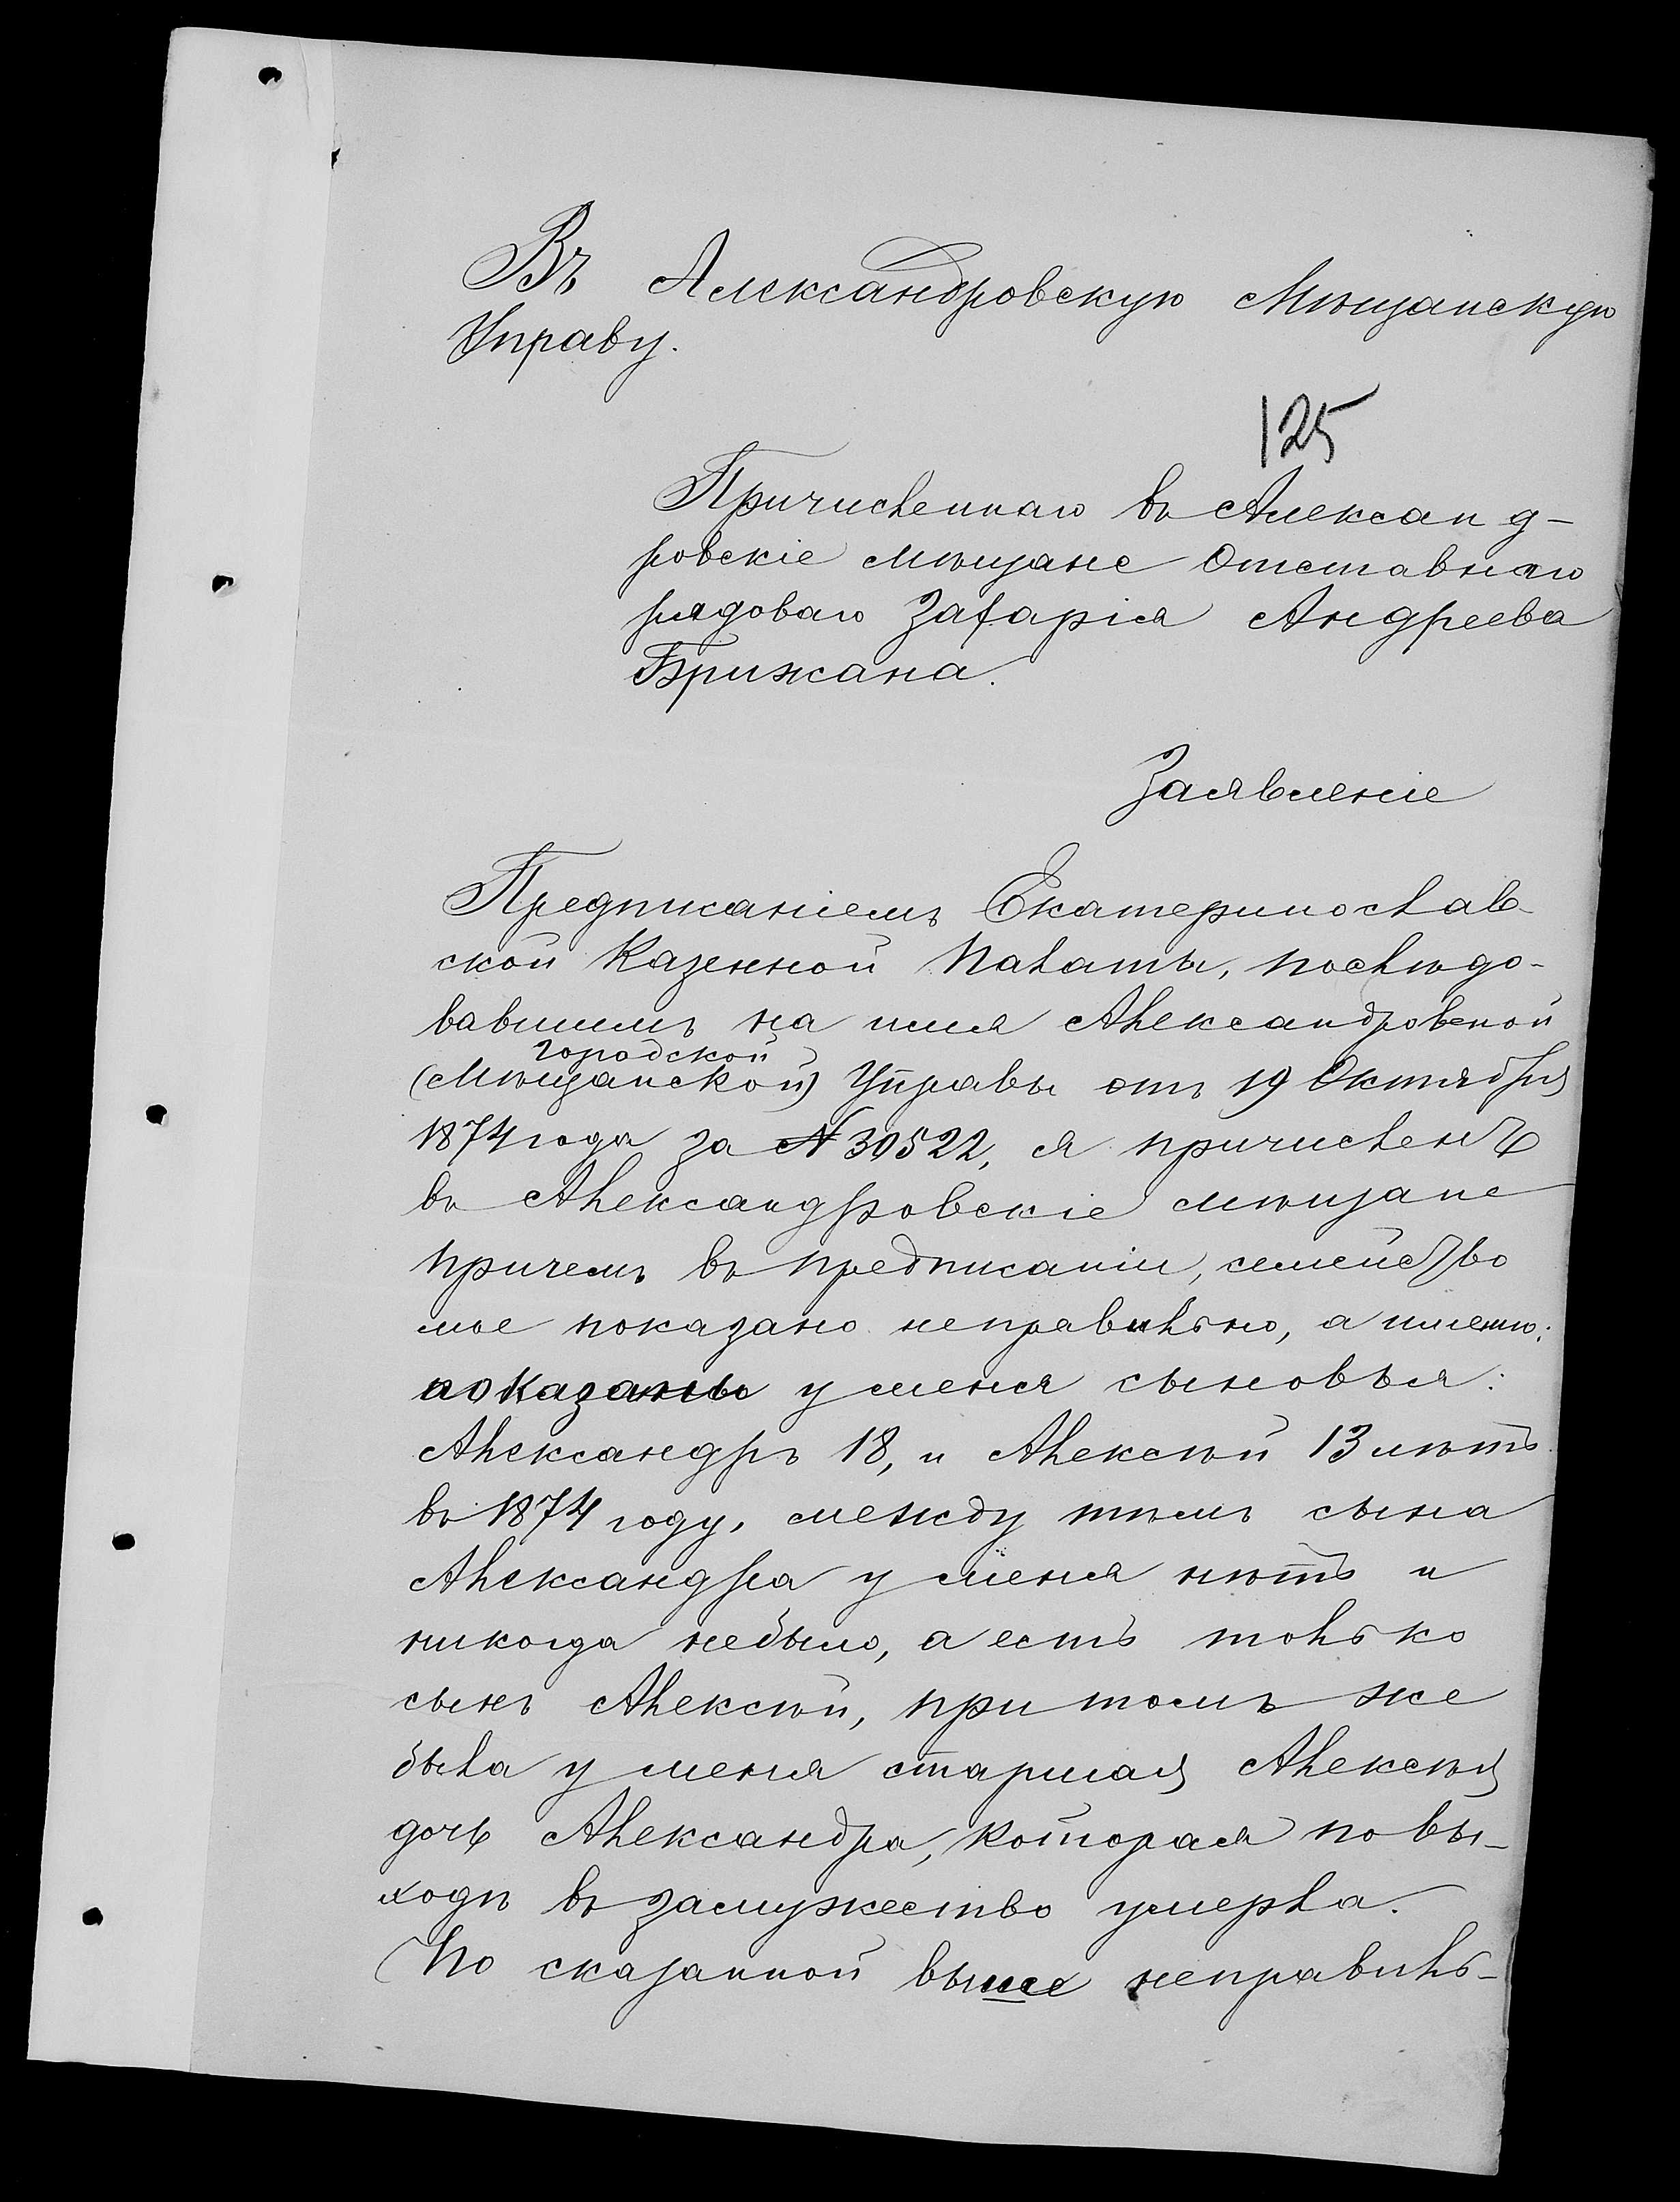 Въ Александровскую Мѣщанскую
Управу.
125
Причисленнаго въ Александ-
ровскіе мѣщане Отставнаго
рядоваго Захарія Андреева
Брижана.
Заявленіе
Предписаніемъ Екатеринослав-
ской Казенной Палаты, послѣдо-
вавшимъ на имя Александровской
городской
(Мѣщанской) Управы отъ 19 Октября
1874 года за № 30522, я причисленъ
въ Александровскіе мѣщане
причемъ въ предписаніи, семейство
мое показано неправильно, а именно:
показаны у меня сыновья:
Александръ 18, и Алексѣй 13 лѣтъ
въ 1874 году, между тѣмъ сына
Александра у меня нѣтъ и
никогда небыло, а есть только
сынъ Алексѣй, при томъ же
была у меня старшая Алексѣя
дочь Александра, которая по вы-
ходѣ въ замужество умерла.
По сказанной выше неправиль-